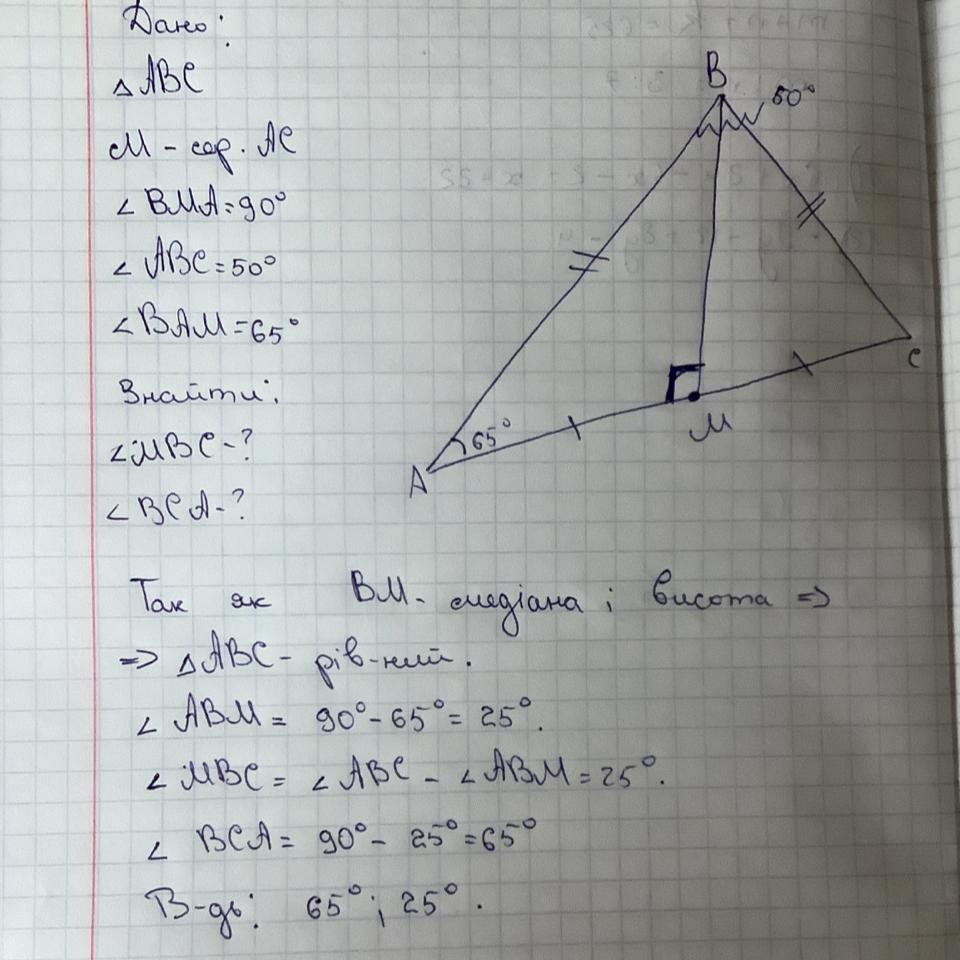 Дано:
△ABC
M - сер. AC
∠ BMA = 90°
∠ ABC = 50°
∠ BAM = 65°
Знайти:
∠MBC - ?
∠ BCA - ?
B
50°
C
M
65°
A
Так як BM - медіана і висота =>
=> △ABC - рів-ний.
∠ ABM = 90° - 65° = 25°.
∠ MBC = ∠ ABC - ∠ ABM = 25°.
∠ BCA = 90° - 25° = 65°
В-дь: 65°; 25°.